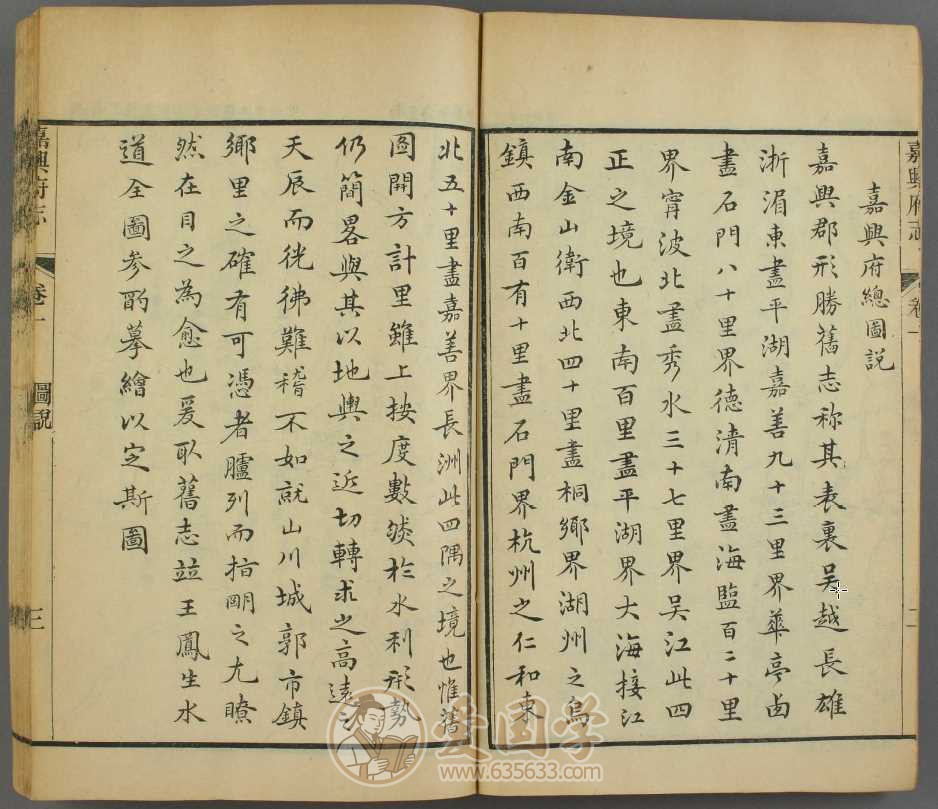 嘉興府志
卷一
二
嘉興府總圖説
嘉興郡形勝舊志称其表裏吴越長雄
浙湄東盡平湖嘉善九十三里界華亭鹵
盡石門八十里界德清南盡海監百二十里
界甯波北盡秀水三十七里界吴江此四
正之境也東南百里盡平湖界大海接江
南金山衛西北四十里盡桐鄉界湖州之烏
鎮西南百有十里盡石門界杭州之仁和東
北五十里盡嘉善界長洲此四隅之境也惟舊
圖開方計里雖上按度數然於水利形勢
仍簡畧與其以地輿之近切轉求之高遠之
天辰而恍彿難稽不如就山川城郭市鎮
鄉里之確有可憑者臚列而指明之尤瞭
然在目之為愈也爰取舊志竝王鳳生水
道全圖参酌摹繪以定斯圖
嘉興府志
卷一
圖説
三
爱国学
www.635633.com